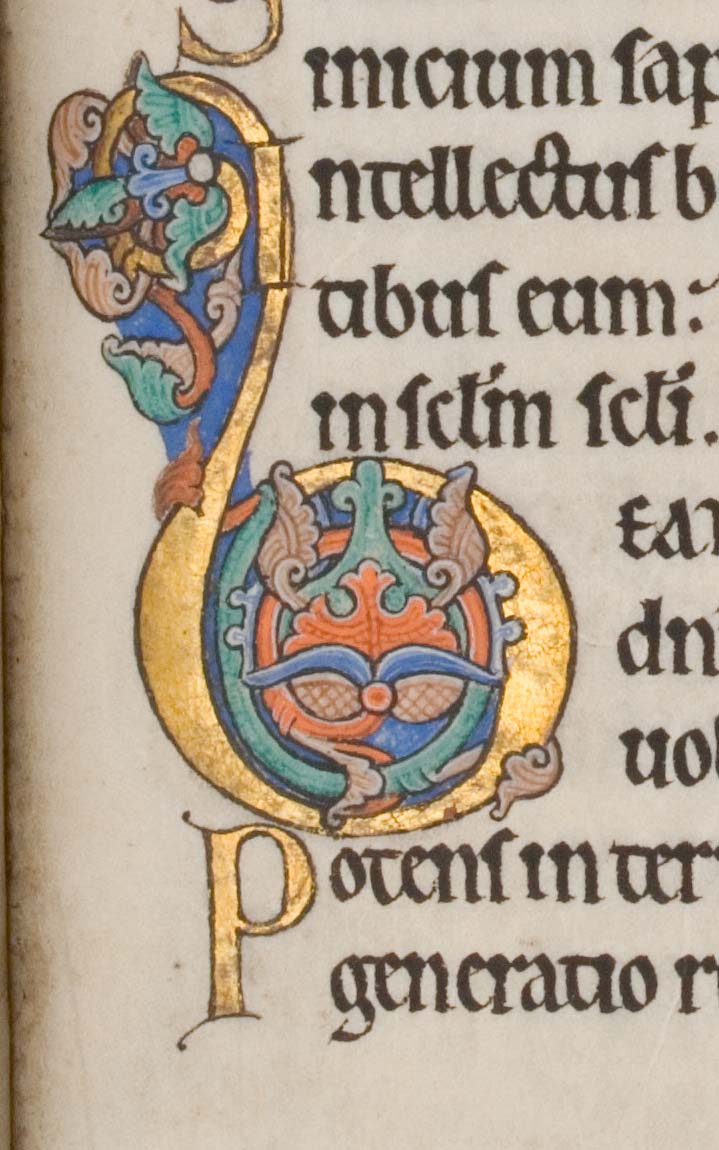 S
inicium sap
Intellectus b
tibus eum:
in sclm scli.
BEAT
dn
uol
Potens in terr
generatio r